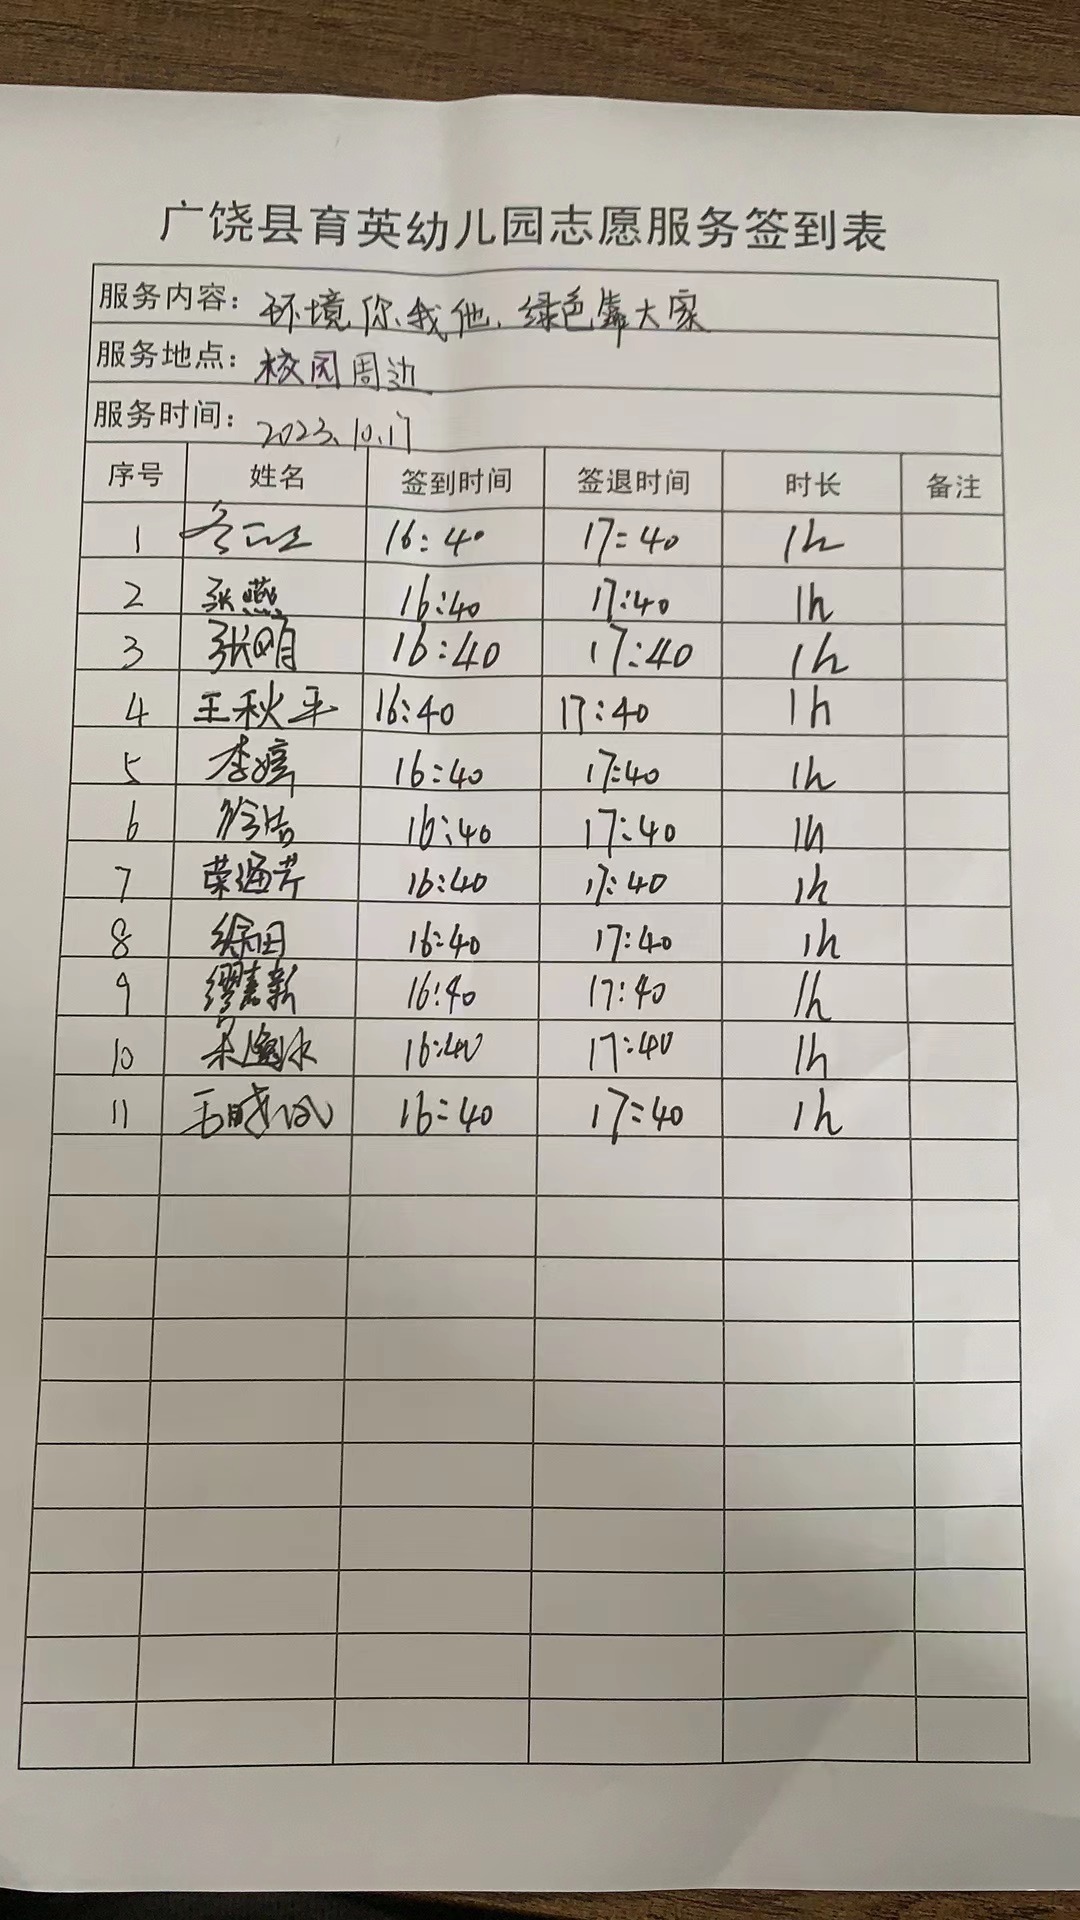 广饶县育英幼儿园志愿服务签到表
服务内容：环境你、我他、绿色靠大家
服务地点：校园周边
服务时间：2023.10.17
序号 姓名 签到时间 签退时间 时长 备注
1 16:40 17:40 1h
2 张燕 16:40 17:40 1h
3 张明 16:40 17:40 1h
4 王秋平 16:40 17:40 1h
5 李婷 16:40 17:40 1h
6 16:40 17:40 1h
7 荣通芹 16:40 17:40 1h
8 徐田 16:40 17:40 1h
9 缪嘉新 16:40 17:40 1h
10 16:40 17:40 1h
11 16:40 17:40 1h